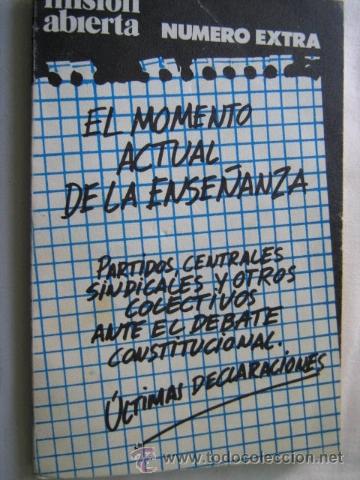 misión
abierta
NUMERO EXTRA
EL MOMENTO
ACTUAL
DE LA ENSEÑANZA
PARTIDOS, CENTRALES
SINDICALES Y OTROS
COLECTIVOS
ANTE EL DEBATE
CONSTITUCIONAL.
ÚLTIMAS DECLARACIONES
todocoleccion.net